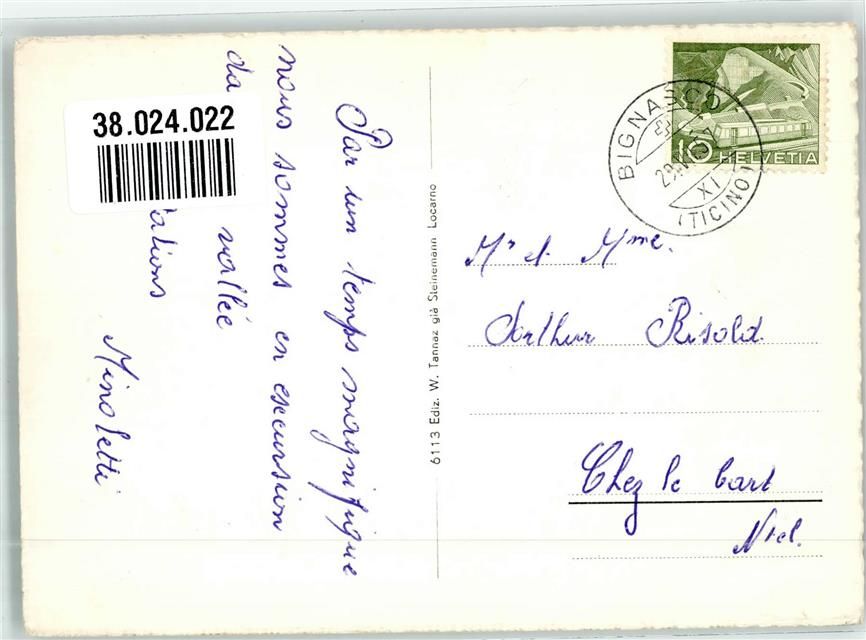 38.024.022
Par un temps magnifique
nous sommes en excursion
da
vallée
tations
Minoletti
6113 Ediz. W. Tannaz già Steinemann Locarno
BIGNASCO
XI
(TICINO)
10 HELVETIA
Mr et. Mme.
Arthur Risold.
Chez le bart
Ntel.